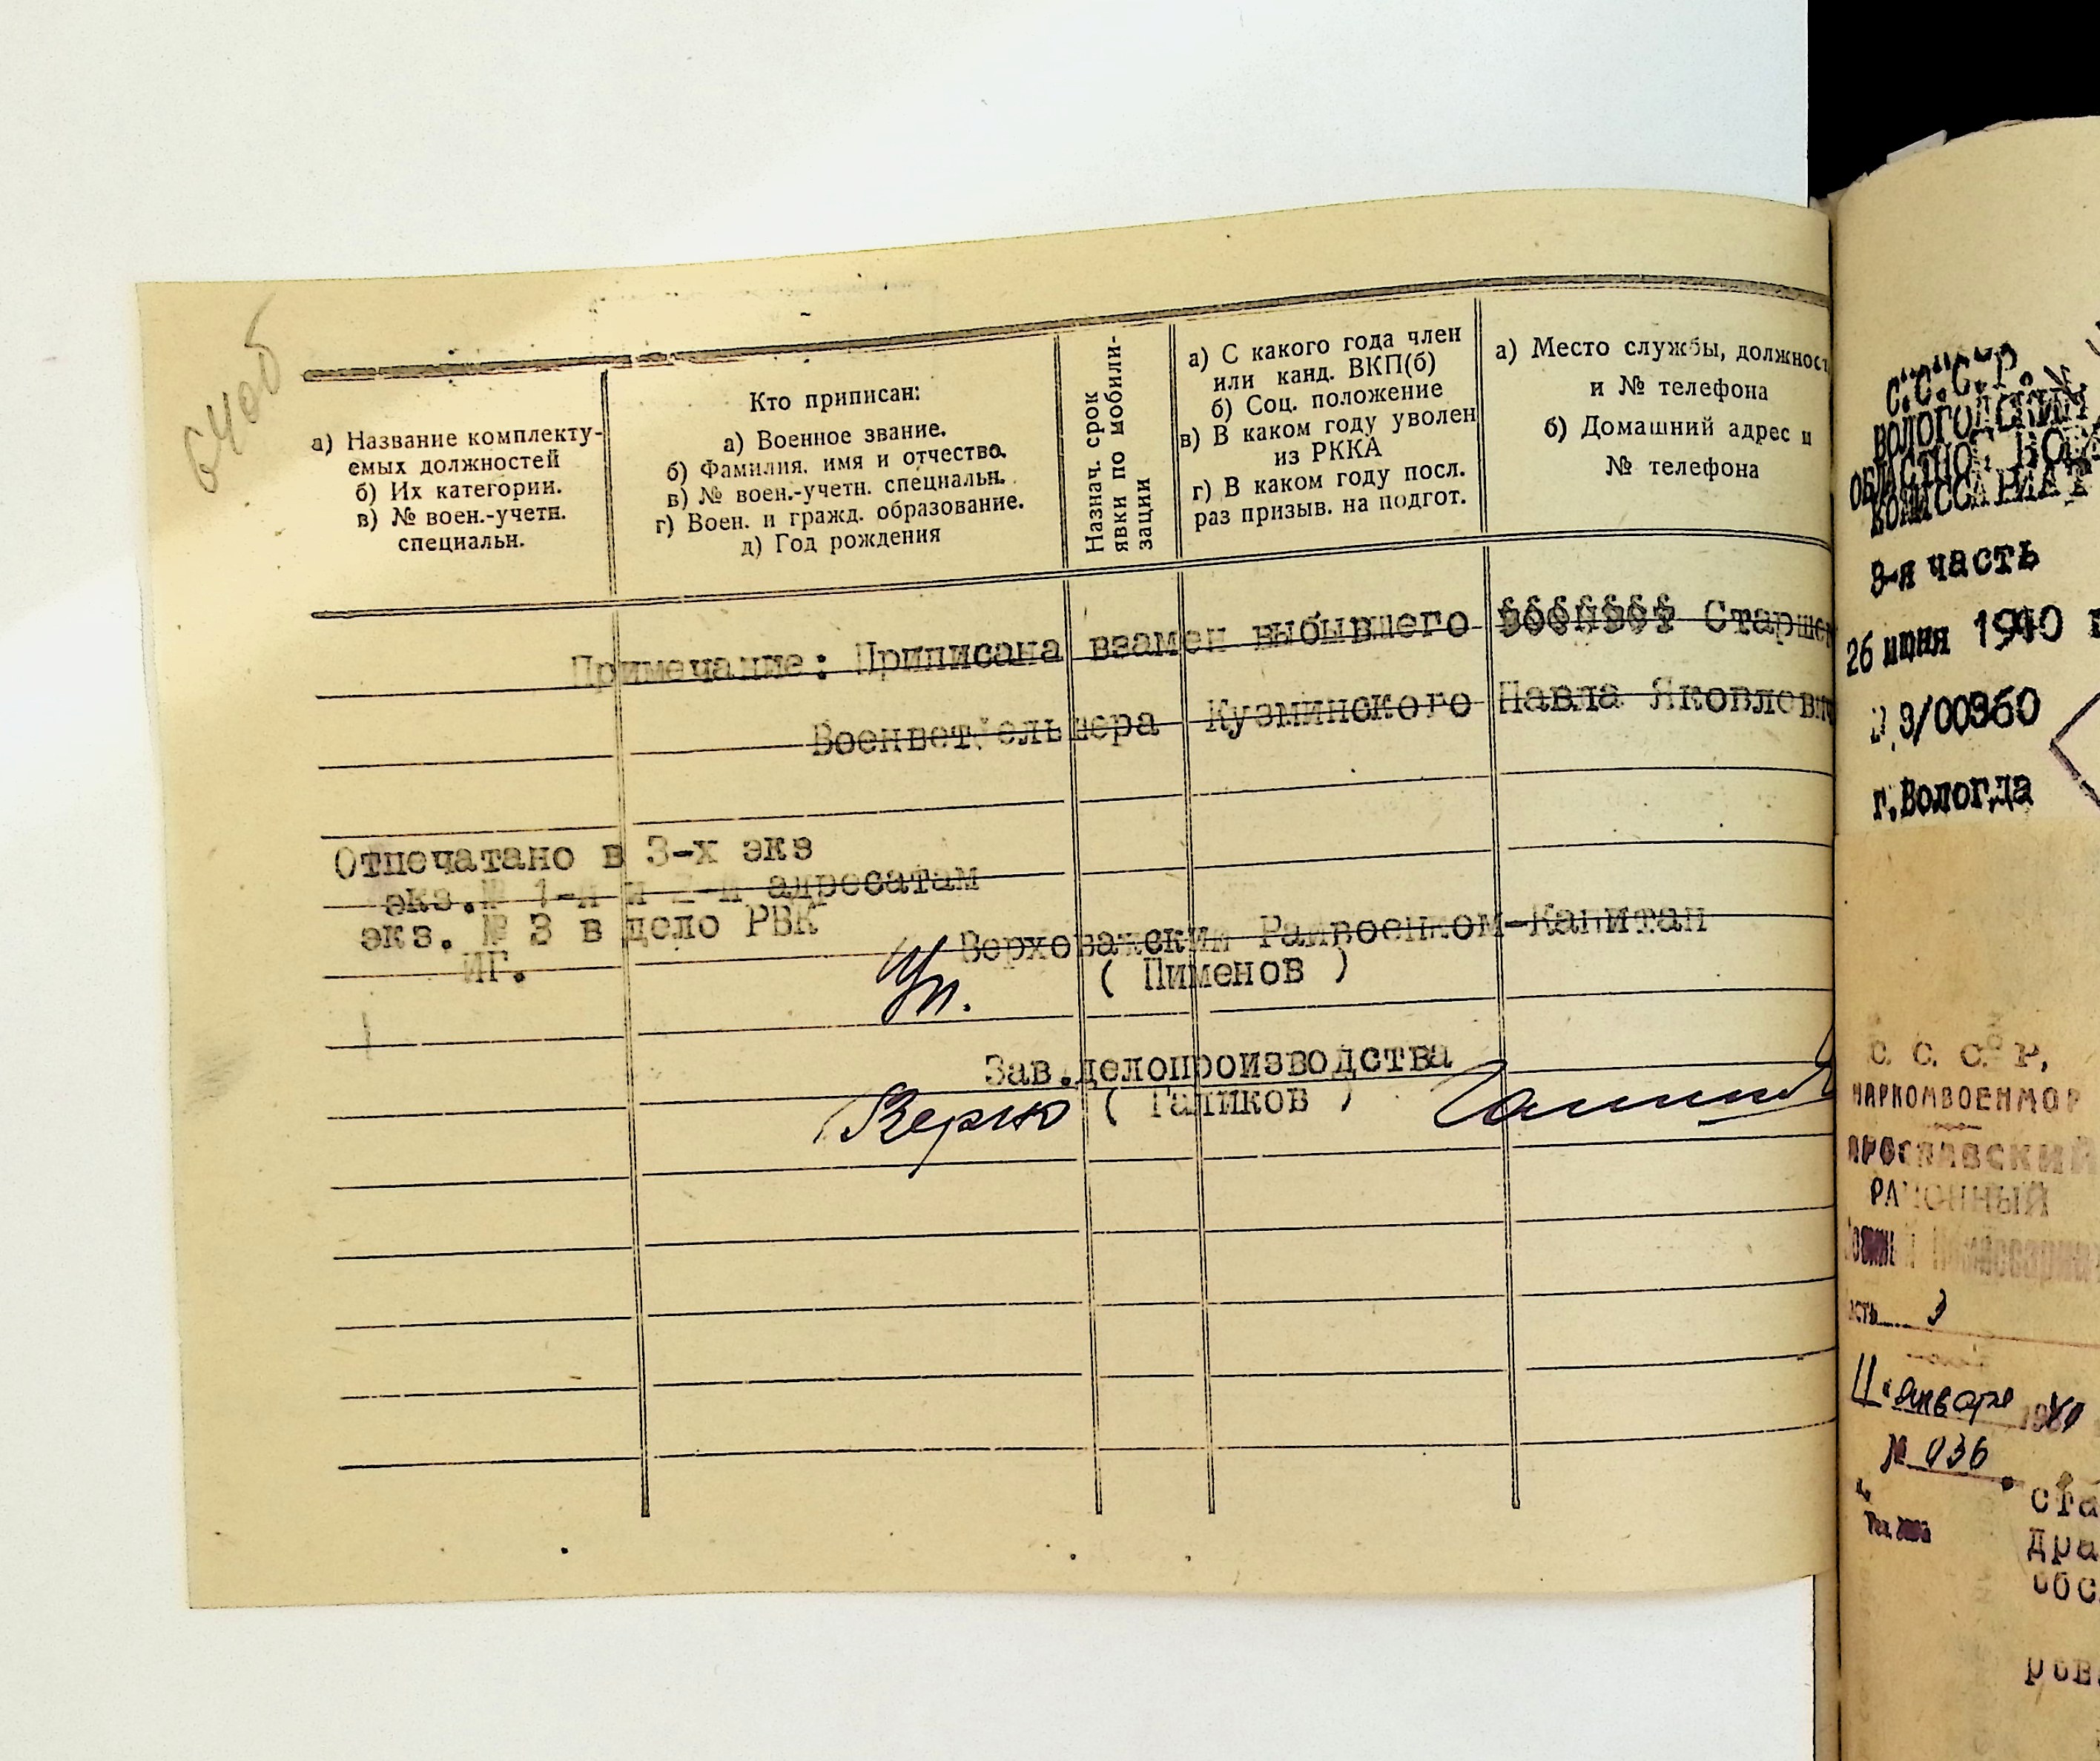 640б
а) Название комплекту-
емых должностей
б) Их категории.
в) № воен.-учетн.
специальн.
Кто приписан:
а) Военное звание.
б) Фамилия, имя и отчество.
в) № воен.-учетн. специальн.
г) Воен. и гражд. образование.
д) Год рождения
Назнач. срок
явки по мобили-
зации
а) С какого года член
или канд. ВКП(б)
б) Соц. положение
в) В каком году уволен
из РККА
г) В каком году посл.
раз призыв. на подгот.
а) Место службы, должност
и № телефона
б) Домашний адрес и
№ телефона
Примечание: Приписана взамен выбывшего Старше
Военветфельшера Кузминского Павла Яковлеви
Отпечатано в 3-х экз
экз.№ 1-й и 2-й адресатам
экз. № 3 в дело РВК
ИГ.
Верховажский Райвоенком-Капитан
( Пименов )
Зав.делопроизводства
Верно ( Галиков )
С.С.С.Р.
ВОЛОГОДСКИЙ
ОБЛАСТНОЙ ВОЕН
КОМИССАРИАТ
3-я часть
26 июня 1940 г
№ 3/00360
г.Вологда
С. С. С. Р.
НАРКОМВОЕНМОР
ЯРОСЛАВСКИЙ
РАЙОННЫЙ
Военный Комиссариат
асть 3
11 января
№ 036
ста
дра
обс
ров